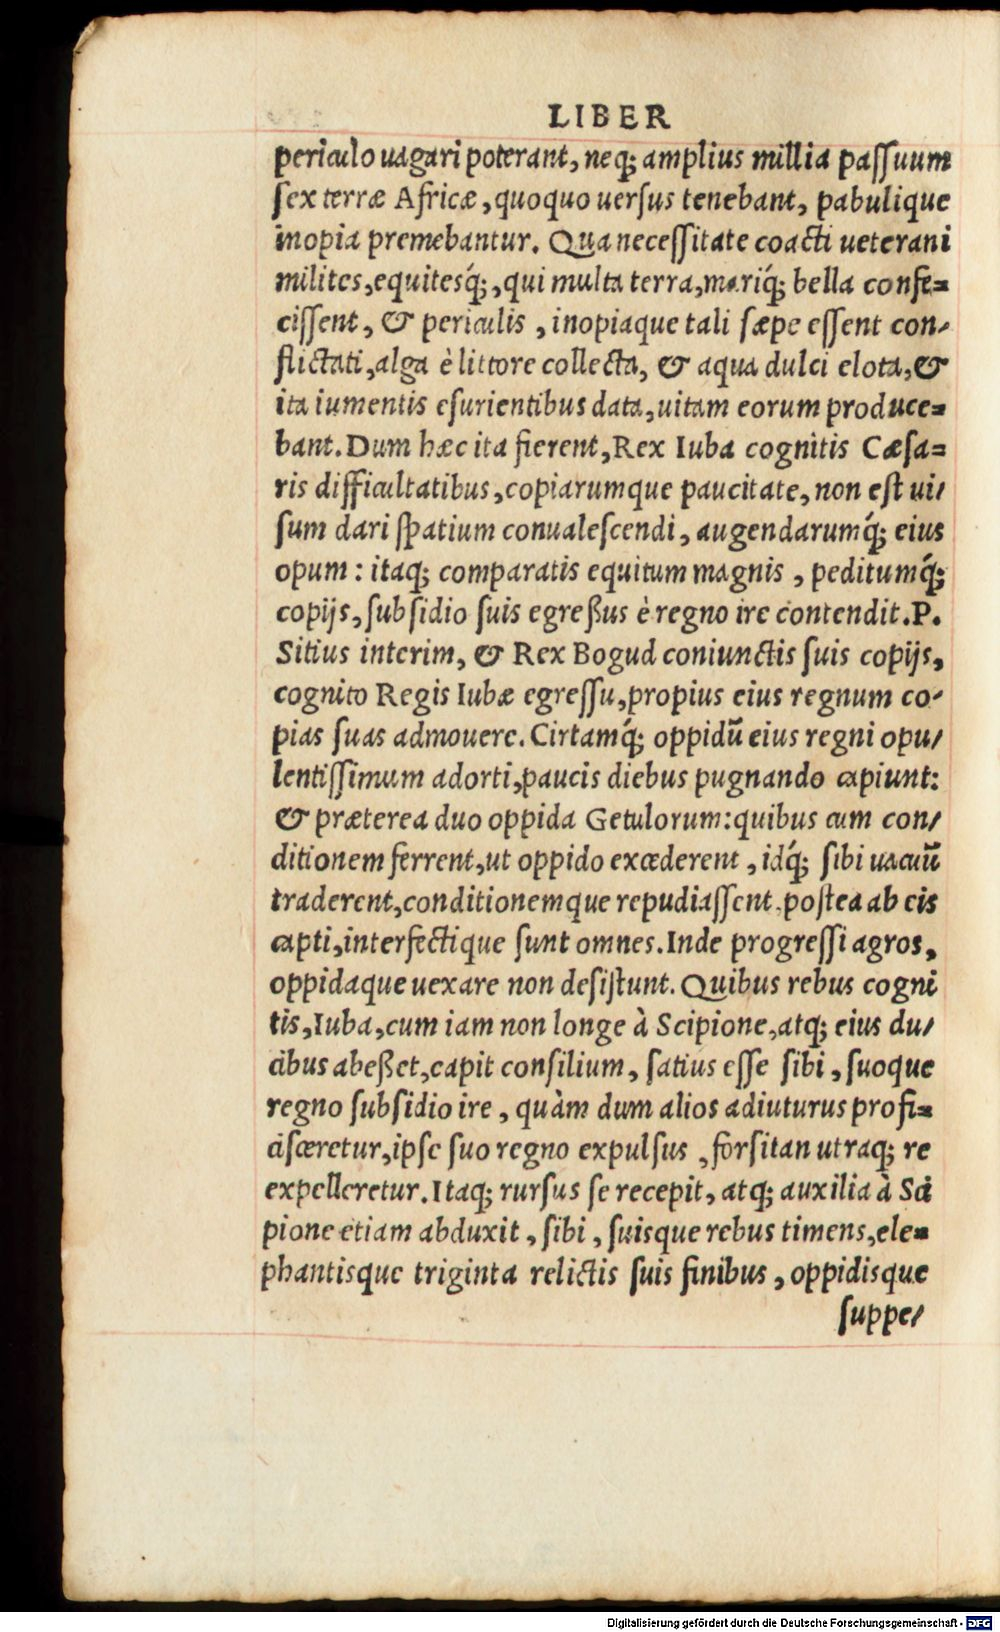 LIBER
periculo uagari poterant, neq; amplius millia paſſuum
ſex terræ Africæ, quoquo uerſus tenebant, pabulique
inopia premebantur. Qua neceſſitate coacti ueterani
milites, equitesq́;, qui multa terra, mariq́; bella confe=
ciſſent, & periculis, inopiaque tali ſæpe eſſent con-
flictati, alga è littore collecta, & aqua dulci elota, &
ita iumentis eſurientibus data, uitam eorum produce=
bant. Dum hæc ita fierent, Rex Iuba cognitis Cæſa=
ris difficultatibus, copiarumque paucitate, non eſt ui/
ſum dari ſpatium conualeſcendi, augendarumq́; eius
opum: itaq; comparatis equitum magnis, peditumq́;
copijs, ſubſidio ſuis egreßus è regno ire contendit. P.
Sitius interim, & Rex Bogud coniunctis ſuis copijs,
cognito Regis Iubæ egreſſu, propius eius regnum co-
pias ſuas admouere. Cirtamq́; oppidū eius regni opu/
lentiſſimum adorti, paucis diebus pugnando capiunt:
& præterea duo oppida Getulorum: quibus cum con/
ditionem ferrent, ut oppido excederent, idq́; ſibi uacuū
traderent, conditionemque repudiaſſent. poſtea ab eis
capti, interfectique ſunt omnes. Inde progreſſi agros,
oppidaque uexare non deſiſtunt. Quibus rebus cogni
tis, Iuba, cum iam non longe à Scipione, atq; eius du/
cibus abeßet, capit conſilium, ſatius eſſe ſibi, ſuoque
regno ſubſidio ire, quàm dum alios adiuturus profi=
ciſceretur, ipſe ſuo regno expulſus, forſitan utraq; re
expelleretur. Itaq; rurſus ſe recepit, atq; auxilia à Sci
pione etiam abduxit, ſibi, ſuisque rebus timens, ele=
phantisque triginta relictis ſuis finibus, oppidisque
ſuppe/
Digitalisierung gefördert durch die Deutsche Forschungsgemeinschaft - DFG